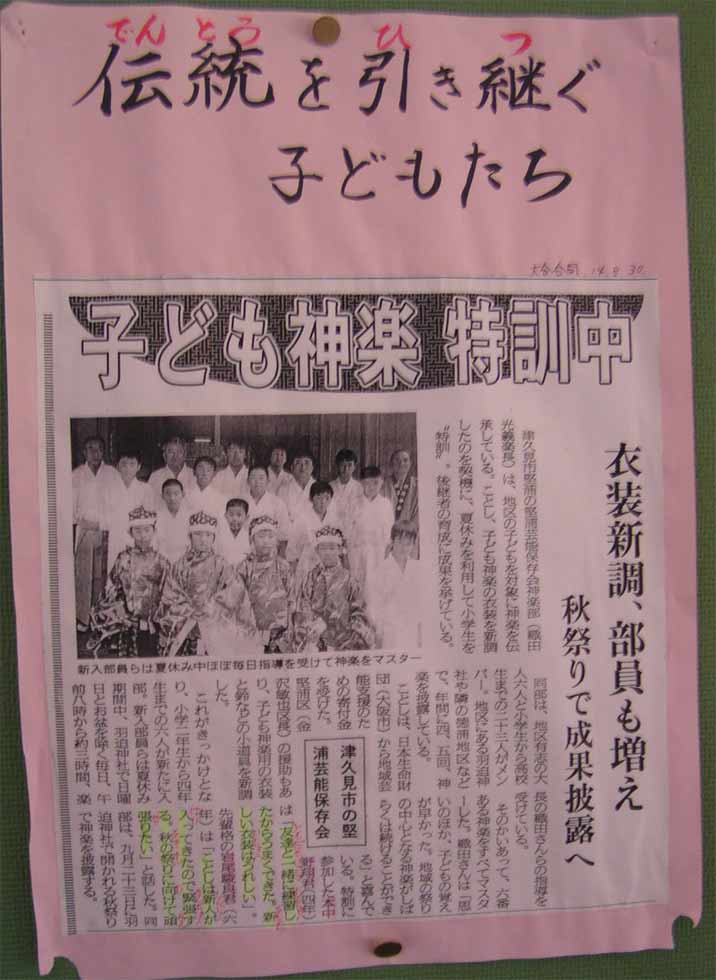 でんとう ひ つ
伝統を引き継ぐ
子どもたち
14.8.30.
子ども神楽 特訓中
衣装新調、部員も増え
秋祭りで成果披露へ
津久見市堅浦の堅浦芸能保存会神楽部(織田
光義楽長)は、地区の子どもを対象に神楽を伝
承している。ことし、子ども神楽の衣装を新調
したのを契機に、夏休みを利用して小学生を
“特訓”。後継者の育成に成果を挙げている。
新入部員らは夏休み中ほぼ毎日指導を受けて神楽をマスター
同部は、地区有志の大
人六人と小学生から高校
生までの二十三人がメン
バー。地区にある羽迫神
社や隣の徳浦地区など
で、年間に四、五回、神
楽を披露している。
ことしは、日本生命財
団(大阪市)から地域芸
能支援のた
めの寄付金
を受けた。
堅浦区(金
沢敏也区長)の援助もあ
り、子ども神楽用の衣装
と鈴などの小道具を新調
した。
これがきっかけとな
り、小学二年生から四年
生までの六人が新たに入
部。新入部員らは夏休み
期間中、羽迫神社で日曜
日とお盆を除く毎日、午
前八時から約三時間、楽
津久見市の堅
浦芸能保存会
長の織田さんらの指導を
受けている。
そのかいあって、六番
ある神楽をすべてマスタ
ーした。織田さんは「思
いのほか、子どもの覚え
が早かった。地域の祭り
の中心となる神楽がしば
らくは続けることができ
る」と喜んで
いる。特訓に
参加した本中
野翔君(四年)
は「友達と一緒に練習し
たからうまくできた。新
しい衣装はうれしい」。
先輩格の岩尾駿良君(六
年)は「ことしは新人が
入ってきたので緊張す
る。秋の祭りに向けて頑
張りたい」と話した。同
部は、九月二十三日に羽
迫神社で開かれる秋祭り
で神楽を披露する。